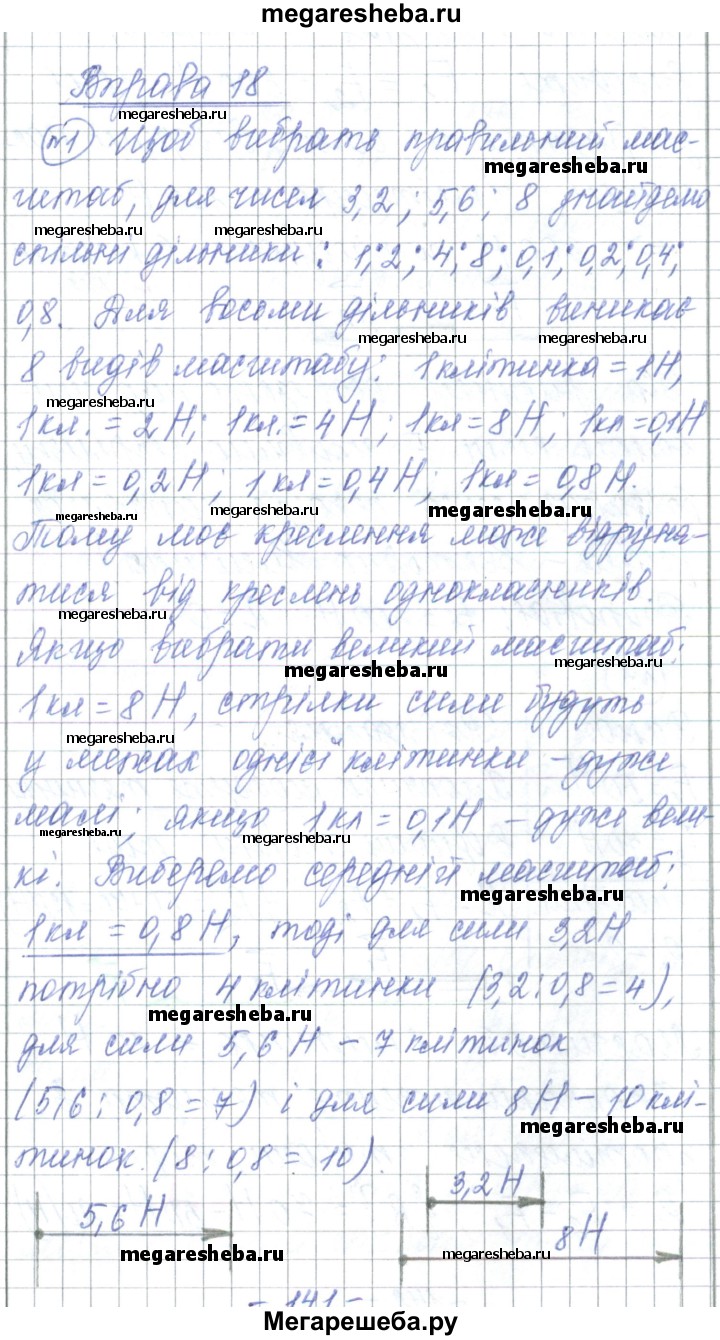 megaresheba.ru
Вправа 18
megaresheba.ru
№1 Щоб вибрать правильний мас-
megaresheba.ru
штаб, для чисел 3,2; 5,6; 8 знайдемо
megaresheba.ru megaresheba.ru megaresheba.ru
спільні дільники: 1; 2; 4; 8; 0,1; 0,2; 0,4;
0,8. Для восьми дільників виникає
megaresheba.ru megaresheba.ru
8 видів масштабу: 1 клітинка = 1Н,
megaresheba.ru
1 кл. = 2 Н; 1 кл. = 4 Н; 1 кл = 8 Н; 1 кл = 0,1 Н
1 кл = 0,2 Н; 1 кл = 0,4 Н; 1 кл = 0,8 Н.
megaresheba.ru megaresheba.ru
Тому моє креслення може відрізня-
тися від креслень однокласників.
megaresheba.ru
Якщо вибрати великий масштаб:
megaresheba.ru megaresheba.ru
1 кл = 8 Н, стрілки сили будуть
megaresheba.ru
у межах однієї клітинки - дуже
малі; якщо 1 кл = 0,1 Н - дуже вели-
megaresheba.ru megaresheba.ru
кі. Виберемо середній масштаб:
megaresheba.ru
1 кл = 0,8 Н, тоді для сили 3,2 Н
потрібно 4 клітинки (3,2 : 0,8 = 4),
megaresheba.ru
для сили 5,6 Н - 7 клітинок
(5,6 : 0,8 = 7) і для сили 8 Н - 10 клі-
megaresheba.ru
тинок. (8 : 0,8 = 10).
3,2 Н
5,6 Н
8 Н
megaresheba.ru megaresheba.ru
- 141 -
Мегарешеба.ру